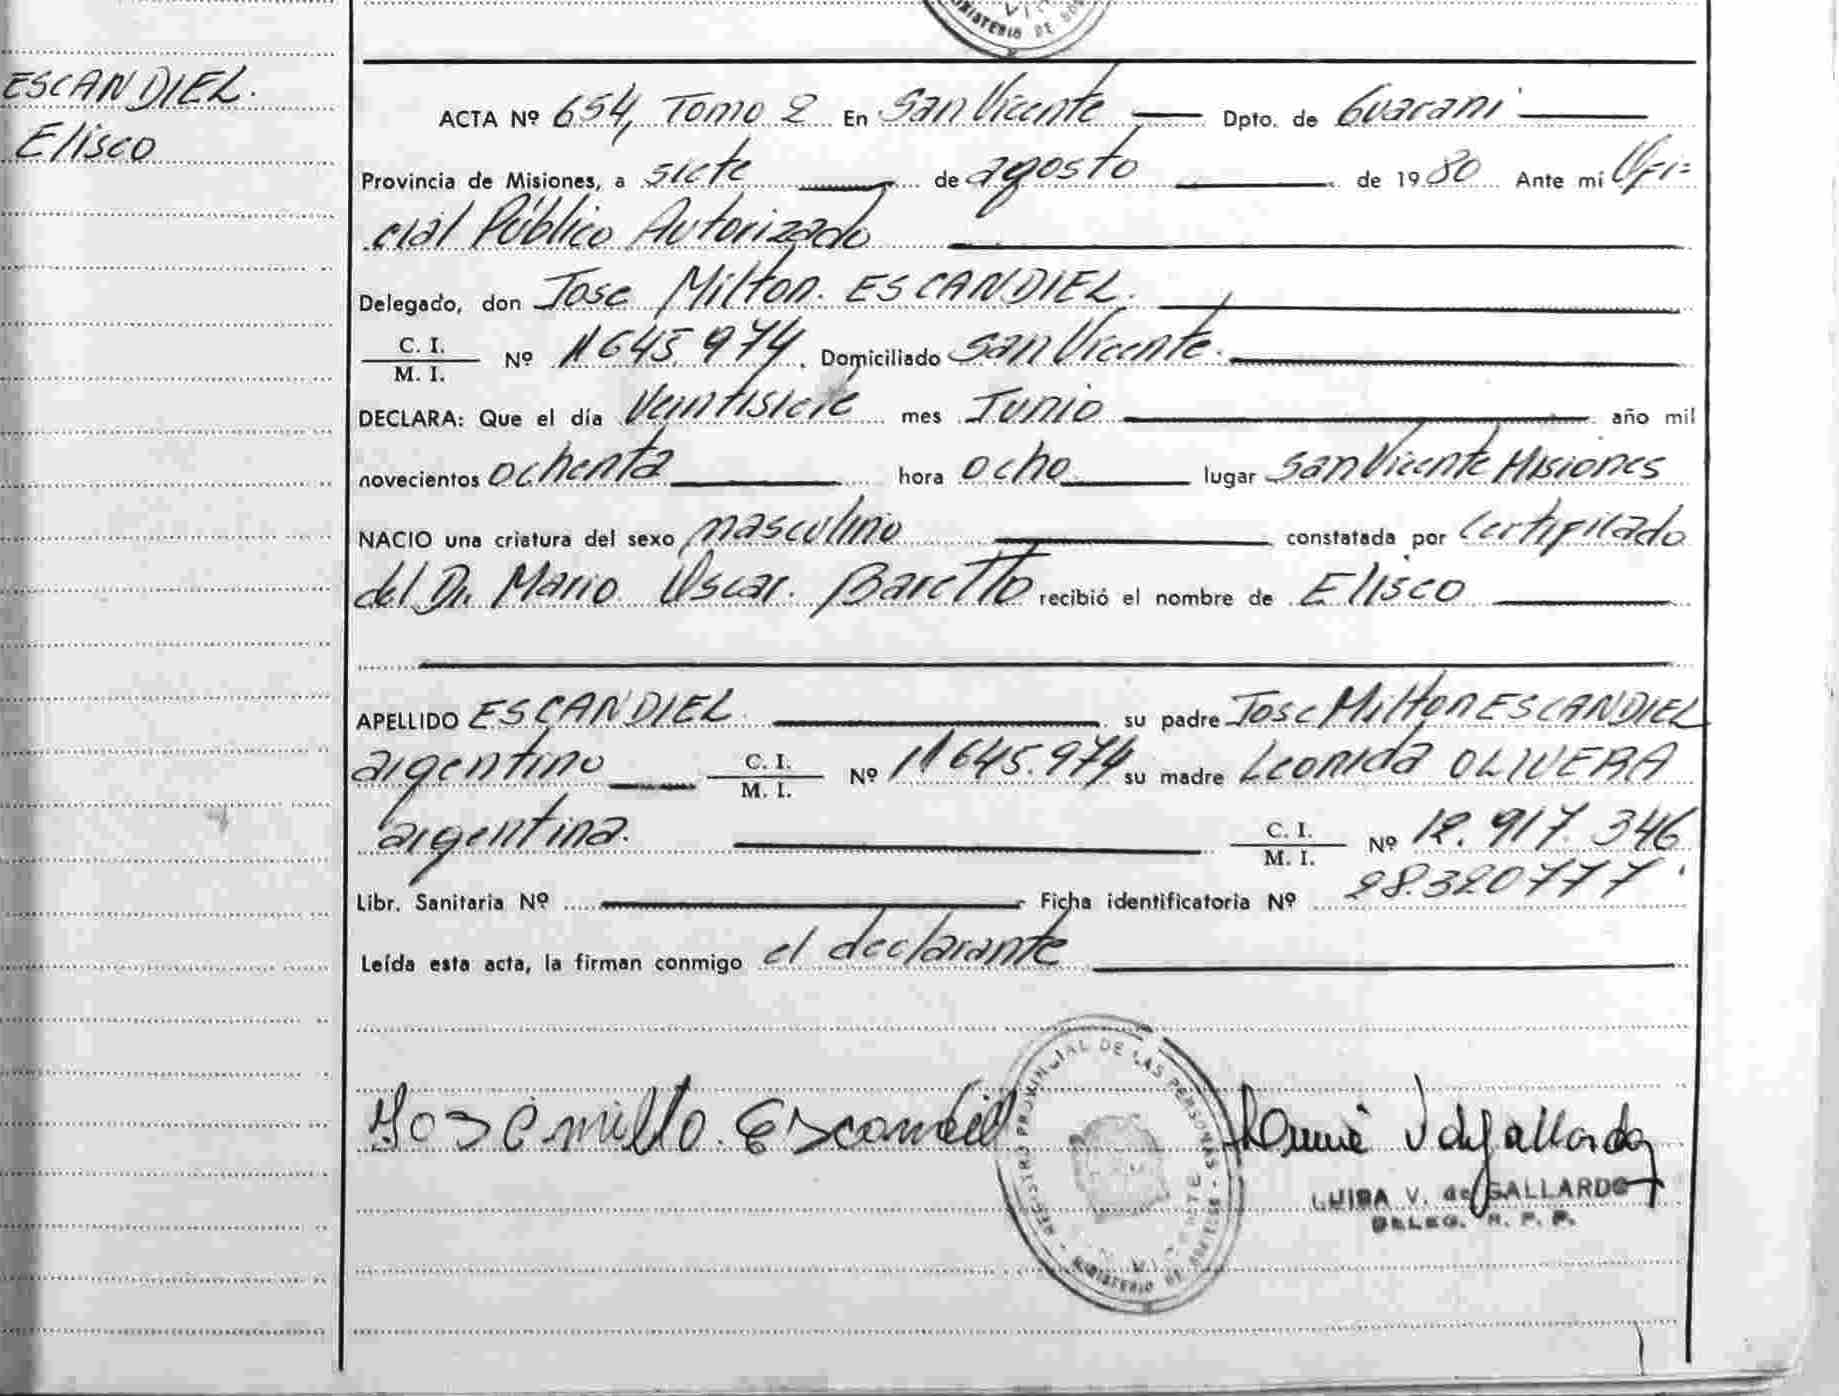 ESCANDIEL.
Elisco
ACTA Nº 654, Tomo 2 En San Vicente Dpto. de Guarani
Provincia de Misiones, a siete de agosto de 1980 Ante mi Ofi=
cial Público Autorizado
Delegado, don Jose Milton. ESCANDIEL.
C. I.
M. I. Nº 11645.974. Domiciliado San Vicente.
DECLARA: Que el día Veintisiete mes Junio año mil
novecientos ochenta hora ocho lugar San Vicente Misiones
NACIO una criatura del sexo masculino constatada por Certificado
del Dr. Mario Oscar. Baretto recibió el nombre de Elisco
APELLIDO ESCANDIEL su padre Jose Milton ESCANDIEL
argentino C. I. M. I. Nº 11645.974 su madre Leonida OLIVERA
argentina. C. I. M. I. Nº 12.917.346
Libr. Sanitaria Nº Ficha identificatoria Nº 28.320777.
Leída esta acta, la firman conmigo el declarante
REGISTRO PROVINCIAL DE LAS PERSONAS
MINISTERIO DE
LUISA V. de GALLARDO
DELEG. R. P. P.